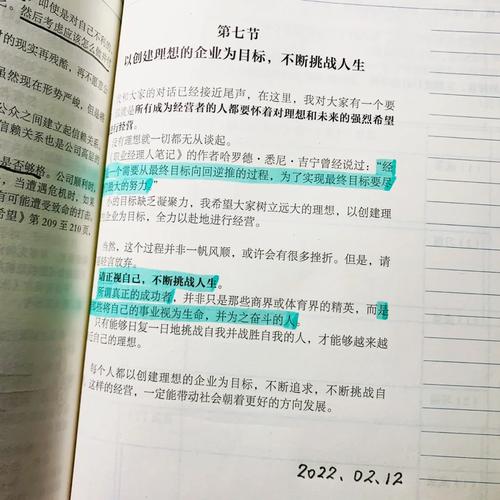 即使是对自己不利的
然后考虑应该怎么做并付
的现实再残酷，再不愿
虽然现在形势严峻，但是将
公众之间建立起信赖关系
信赖关系也是公司高层的
是否够格。公司顺时，
当遭遇危机时，如果
有可能遭受致命的打击。
希望》第 209 至 210 页，
第七节
以创建理想的企业为目标，不断挑战人生
和大家的对话已经接近尾声，在这里，我对大家有一个要
就是所有成为经营者的人都要怀着对理想和未来的强烈希望
进行经营。
没有理想就一切都无从谈起。
《职业经理人笔记》的作者哈罗德·悉尼·吉宁曾经说过：“经
一个需要从最终目标向回逆推的过程，为了实现最终目标要尽
最大的努力。”
小的目标缺乏凝聚力，我希望大家树立远大的理想，以创建理
的企业为目标，全力以赴地进行经营。
当然，这个过程并非一帆风顺，或许会有很多挫折。但是，请
轻言放弃。
请正视自己，不断挑战人生。
所谓真正的成功者，并非只是那些商界或体育界的精英，而是
些将自己的事业视为生命，并为之奋斗的人。
只有能够日复一日地挑战自我并战胜自我的人，才能够越来越
近自己的理想。
每个人都以创建理想的企业为目标，不断追求，不断挑战自
这样的经营，一定能带动社会朝着更好的方向发展。
2022.02.12